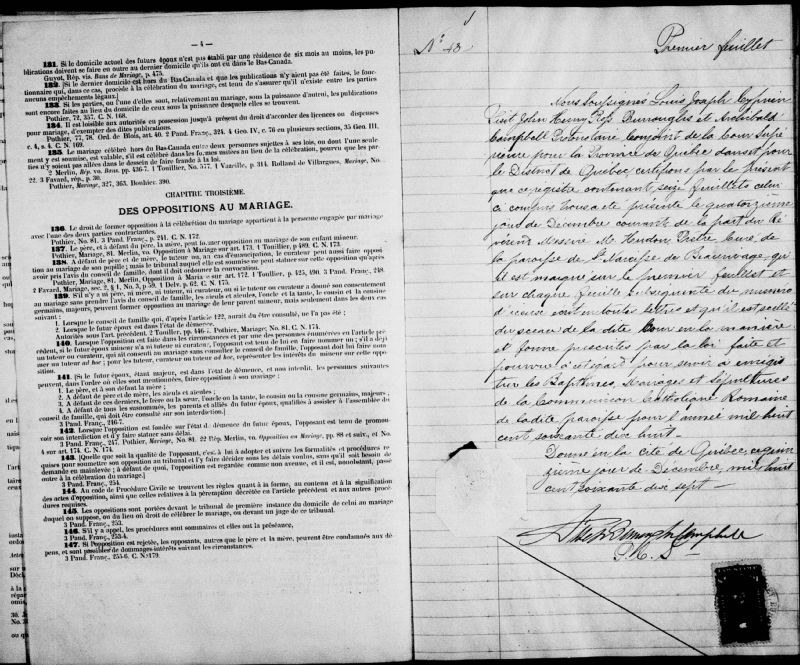 — 4 —
131. Si le domicile actuel des futurs époux n'est pas établi par une résidence de six mois au moins, les pu-
blications doivent se faire en outre au dernier domicile qu'ils ont eu dans le Bas-Canada.
Guyot, Rép. vis. Bans de Mariage, p. 475.
132. [Si le dernier domicile est hors du Bas-Canada et que les publications n'y aient pas été faites, le fonc-
tionnaire qui, dans ce cas, procède à la célébration du mariage, est tenu de s'assurer qu'il n'existe entre les parties
aucuns empêchements légaux.]
133. Si les parties, ou l'une d'elles sont, relativement au mariage, sous la puissance d'autrui, les publications
sont encore faites au lieu du domicile de ceux sous la puissance desquels elles se trouvent.
Pothier, 72, 357. C. N. 168.
134. Il est loisible aux autorités en possession jusqu'à présent du droit d'accorder des licences ou dispenses
pour mariage, d'exempter des dites publications.
Pothier, 77, 78. Ord. de Blois, art. 40. 2 Pand. Franç., 324. 4 Geo. IV, c. 76 en plusieurs sections, 35 Geo. III,
c. 4, s. 4. C. N. 169.
135. Le mariage célébré hors du Bas-Canada entre deux personnes sujettes à ses lois, ou dont l'une seule-
ment y est soumise, est valable, s'il est célébré dans les formes usitées au lieu de la célébration, pourvu que les par-
ties n'y soient pas allées dans le dessein de faire fraude à la loi.
2 Merlin, Rép. vo. Bans, pp. 436-7. 1 Toullier, No. 577, 1 Vazeille, p. 314. Rolland de Villargues, Mariage, No.
22. 3 Favard, rép., p. 30.
Pothier, Mariage, 327, 363. Bouhier. 390.
CHAPITRE TROISIÈME.
DES OPPOSITIONS AU MARIAGE.
136. Le droit de former opposition à la célébration du mariage appartient à la personne engagée par mariage
avec l'une des deux parties contractantes.
Pothier, No. 81. 3 Pand. Franç., p. 241. C. N. 172.
137. Le père, et à défaut du père, la mère, peut former opposition au mariage de son enfant mineur.
Pothier, Mariage, 81. Merlin, vo. Opposition à Mariage sur art. 173, 1 Toullier, p 489. C. N. 173.
138. A défaut de père et de mère, le tuteur ou, au cas d'émancipation, le curateur peut aussi faire opposi-
tion au mariage de son pupille; mais le tribunal auquel elle est soumise ne peut statuer sur cette opposition qu'après
avoir pris l'avis du conseil de famille, dont il doit ordonner la convocation.
Pothier, Mariage, 81. Merlin, Opposition à Maria e sur art. 172. 1 Toullier, p 425, 490. 3 Pand. Franç., 248.
2 Favard, Mariage, sec. 2, § 1, No. 3, p 59. 1 Delv. p. 62. C. N. 175.
139. S'il n'y a ni père, ni mère, ni tuteur, ni curateur, ou si le tuteur ou curateur a donné son consentement
au mariage sans prendre l'avis du conseil de famille, les aïeuls et aïeules, l'oncle et la tante, le cousin et la cousine
germains, majeurs, peuvent former opposition au mariage de leur parent mineur, mais seulement dans les deux cas
suivant :
1. Lorsque le conseil de famille qui, d'après l'article 122, aurait du être consulté, ne l'a pas été ;
2. Lorsque le futur époux est dans l'état de démence.
Autorités sous l'art. précédent, 2 Toullier, pp 446-7. Pothier, Mariage; No. 81. C. N. 174.
140. Lorsque l'opposition est faite dans les circonstances et par une des personnes énumérées en l'article pré-
cédent, si le futur époux mineur n'a ni tuteur ni curateur, l'opposant est tenu de lui en faire nommer un ; s'il a déjà
un tuteur ou curateur, qui ait consenti au mariage sans consulter le conseil de famille, l'opposant doit lui faire nom-
mer un tuteur ad hoc ; pour les tuteur, curateur ou tuteur ad hoc, représenter les intérêts du mineur sur cette oppo-
sition.
141. [Si le futur époux, étant majeur, est dans l'état de démence, et nos interdit, les personnes suivantes
peuvent, dans l'ordre où elles sont mentionnées, faire opposition à son mariage :
1. Le père, et à son défaut la mère ;
2. A défaut de père et de mère, les aïeuls et aïeules ;
3. A défaut de ces derniers, le frère ou la sœur, l'oncle ou la tante, le cousin ou la cousine germains, majeurs,
4. A défaut de tous les susnommés, les parents et alliés du futur époux, qualifiés à assister à l'assemblée du
conseil de famille, qui doit être consulté sur son interdiction.]
3 Pand. Franç., 246-7.
142. Lorsque l'opposition est fondée sur l'état d démence du futur époux, l'opposant est tenu de promou-
voir son interdiction et d'y faire statuer sans délai.
3 Pand. Franç., 247. Pothier, Mariage, No. 81. 22 Rép. Merlin, vo. Opposition en Mariage, pp. 88 et suiv., et No.
4 sur art. 174. C. N. 174.
143. [Quelque que soit la qualité de l'opposant, c'est à lui à adopter et suivre les formalités et procédures re-
quises pour soumettre son opposition au tribunal et l'y faire décider sous les délais voulus, sans qu'il soit besoin de
demande en mainlevée ; à défaut de quoi, l'opposition est regardée comme non avenue, et il est, nonobstant, passé
outre à la célébration du mariage.]
3 Pand. Franç., 254.
144. Au code de Procédure Civile se trouvent les règles quant à la forme, au contenu et à la signification
des actes d'opposition, ainsi que celles relatives à la péremption décrétée en l'article précédent et aux autres procé-
dures requises.
145. Les oppositions sont portées devant le tribunal de première instance du domicile de celui au mariage
duquel on suppose, ou du lieu où doit se célébrer le mariage, ou devant un juge de ce tribunal.
3 Pand. Franç., 253.
146. S'il y a appel, les procédures sont sommaires et elles ont la préséance.
3 Pand. Franç., 253-4.
147. Si l'opposition est rejetée, les opposants, autres que le père et la mère, peuvent être condamnés aux dé-
pens, et sont passibles de dommages-intérêts suivant les circonstances.
3 Pand. Franç., 255-6. C. N. 179.
No 43
Premier feuillet
Nous Soussignés Louis Joseph Cyprien
Fiset John Henry Ross Burroughs et Archibald
Campbell Protonotaire Conjoint de la Cour Supé
rieure pour la Province de Québec dans et pour
le District de Québec, certifions par le présent
que ce registre contenant seize feuillets celui
ci compris nous a été présenté le quatorzième
jour de Décembre courant de la part du Ré
vérend Messire M. Hendon, Prêtre Curé de
la paroisse de St Narcisse de Beaurivage, qu
il est marqué sur le premier feuillet et
sur chaque feuille subséquente du numéro
d'icelle écrit en toutes lettres et qu'il est scellé
du sceau de la dite Cour en la manière
et forme prescrites par la loi faite et
pourvue à cet égard pour servir à enregis
trer les Baptêmes, Mariages et Sépultures
de la Communion Catholique Romaine
de la dite paroisse pour l'année mil huit
cent soixante dix huit —
Donné en la cité de Québec, ce quin
zième jour de Décembre, mil huit
cent soixante dix sept —
Burroughs Campbell
P. C. S